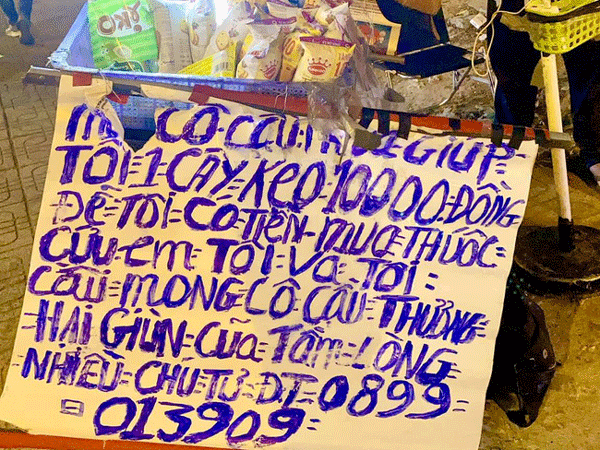 CÔ CẬU GIÚP=
TÔI=1 CÂY=KẸO=10000=ĐỒNG
ĐỄ=TÔI=CÓ=TIỀN=MUA=THUỐC
CỨU=em=TÔI=VÀ=TÔI=
CẦU=MONG=CÔ CẬU=THƯỞNG
HẠI GIÙN=CŨA=TẤM=LÒNG
NHIỀU=CHÚ=TƯ=Đ.T=0899=
=013909=